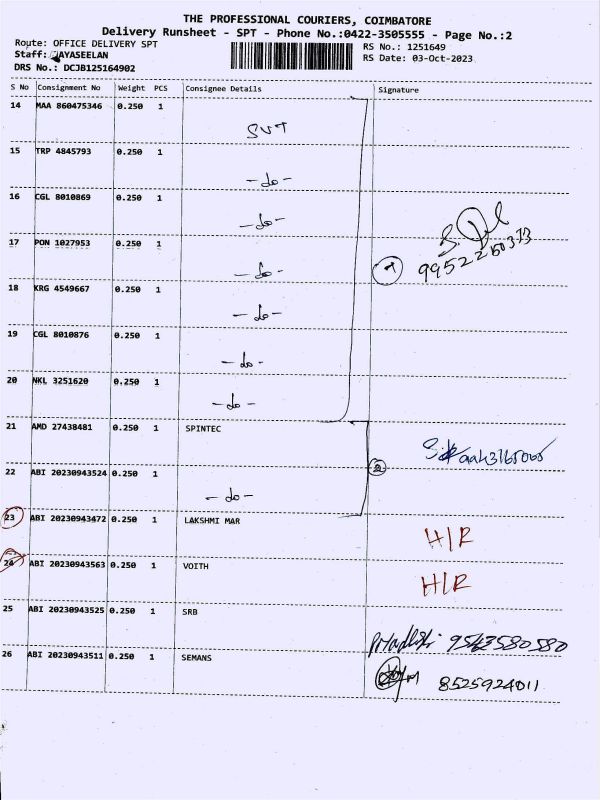 THE PROFESSIONAL COURIERS, COIMBATORE
Delivery Runsheet - SPT - Phone No.:0422-3505555 - Page No.:2
Route: OFFICE DELIVERY SPT RS No.: 1251649
Staff: JAYASEELAN RS Date: 03-Oct-2023
DRS No.: DCJB125164902
S No Consignment No Weight PCS Consignee Details Signature
14 MAA 860475346 0.250 1
SVT
15 TRP 4845793 0.250 1
-do-
16 CGL 8010869 0.250 1
-do-
17 PON 1027953 0.250 1
-do-
9952260373
18 KRG 4549667 0.250 1
-do-
19 CGL 8010876 0.250 1
-do-
20 NKL 3251620 0.250 1
-do-
21 AMD 27438481 0.250 1 SPINTEC
22 ABI 20230943524 0.250 1
-do-
2
23 ABI 20230943472 0.250 1 LAKSHMI MAR
H/R
24 ABI 20230943563 0.250 1 VOITH
H/R
25 ABI 20230943525 0.250 1 SRB
9543580580
26 ABI 20230943511 0.250 1 SEMANS
8525924011